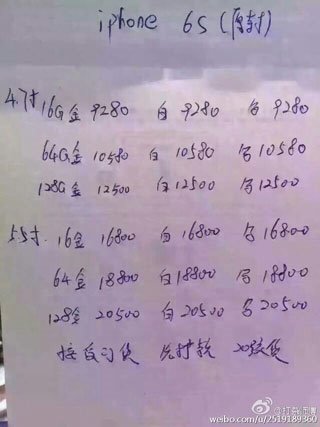 iphone 6S (原封)
4.7寸 16G金 9280 白 9280 9280
64G金 10580 白 10580 10580
128G金 12500 白 12500 12500
5.5寸. 16金 16800 白 16800 16800
64金 18800 白 18800 18800
128金 20500 白 20500 20500
接白订货 先打款
weibo.com/u/2519189360